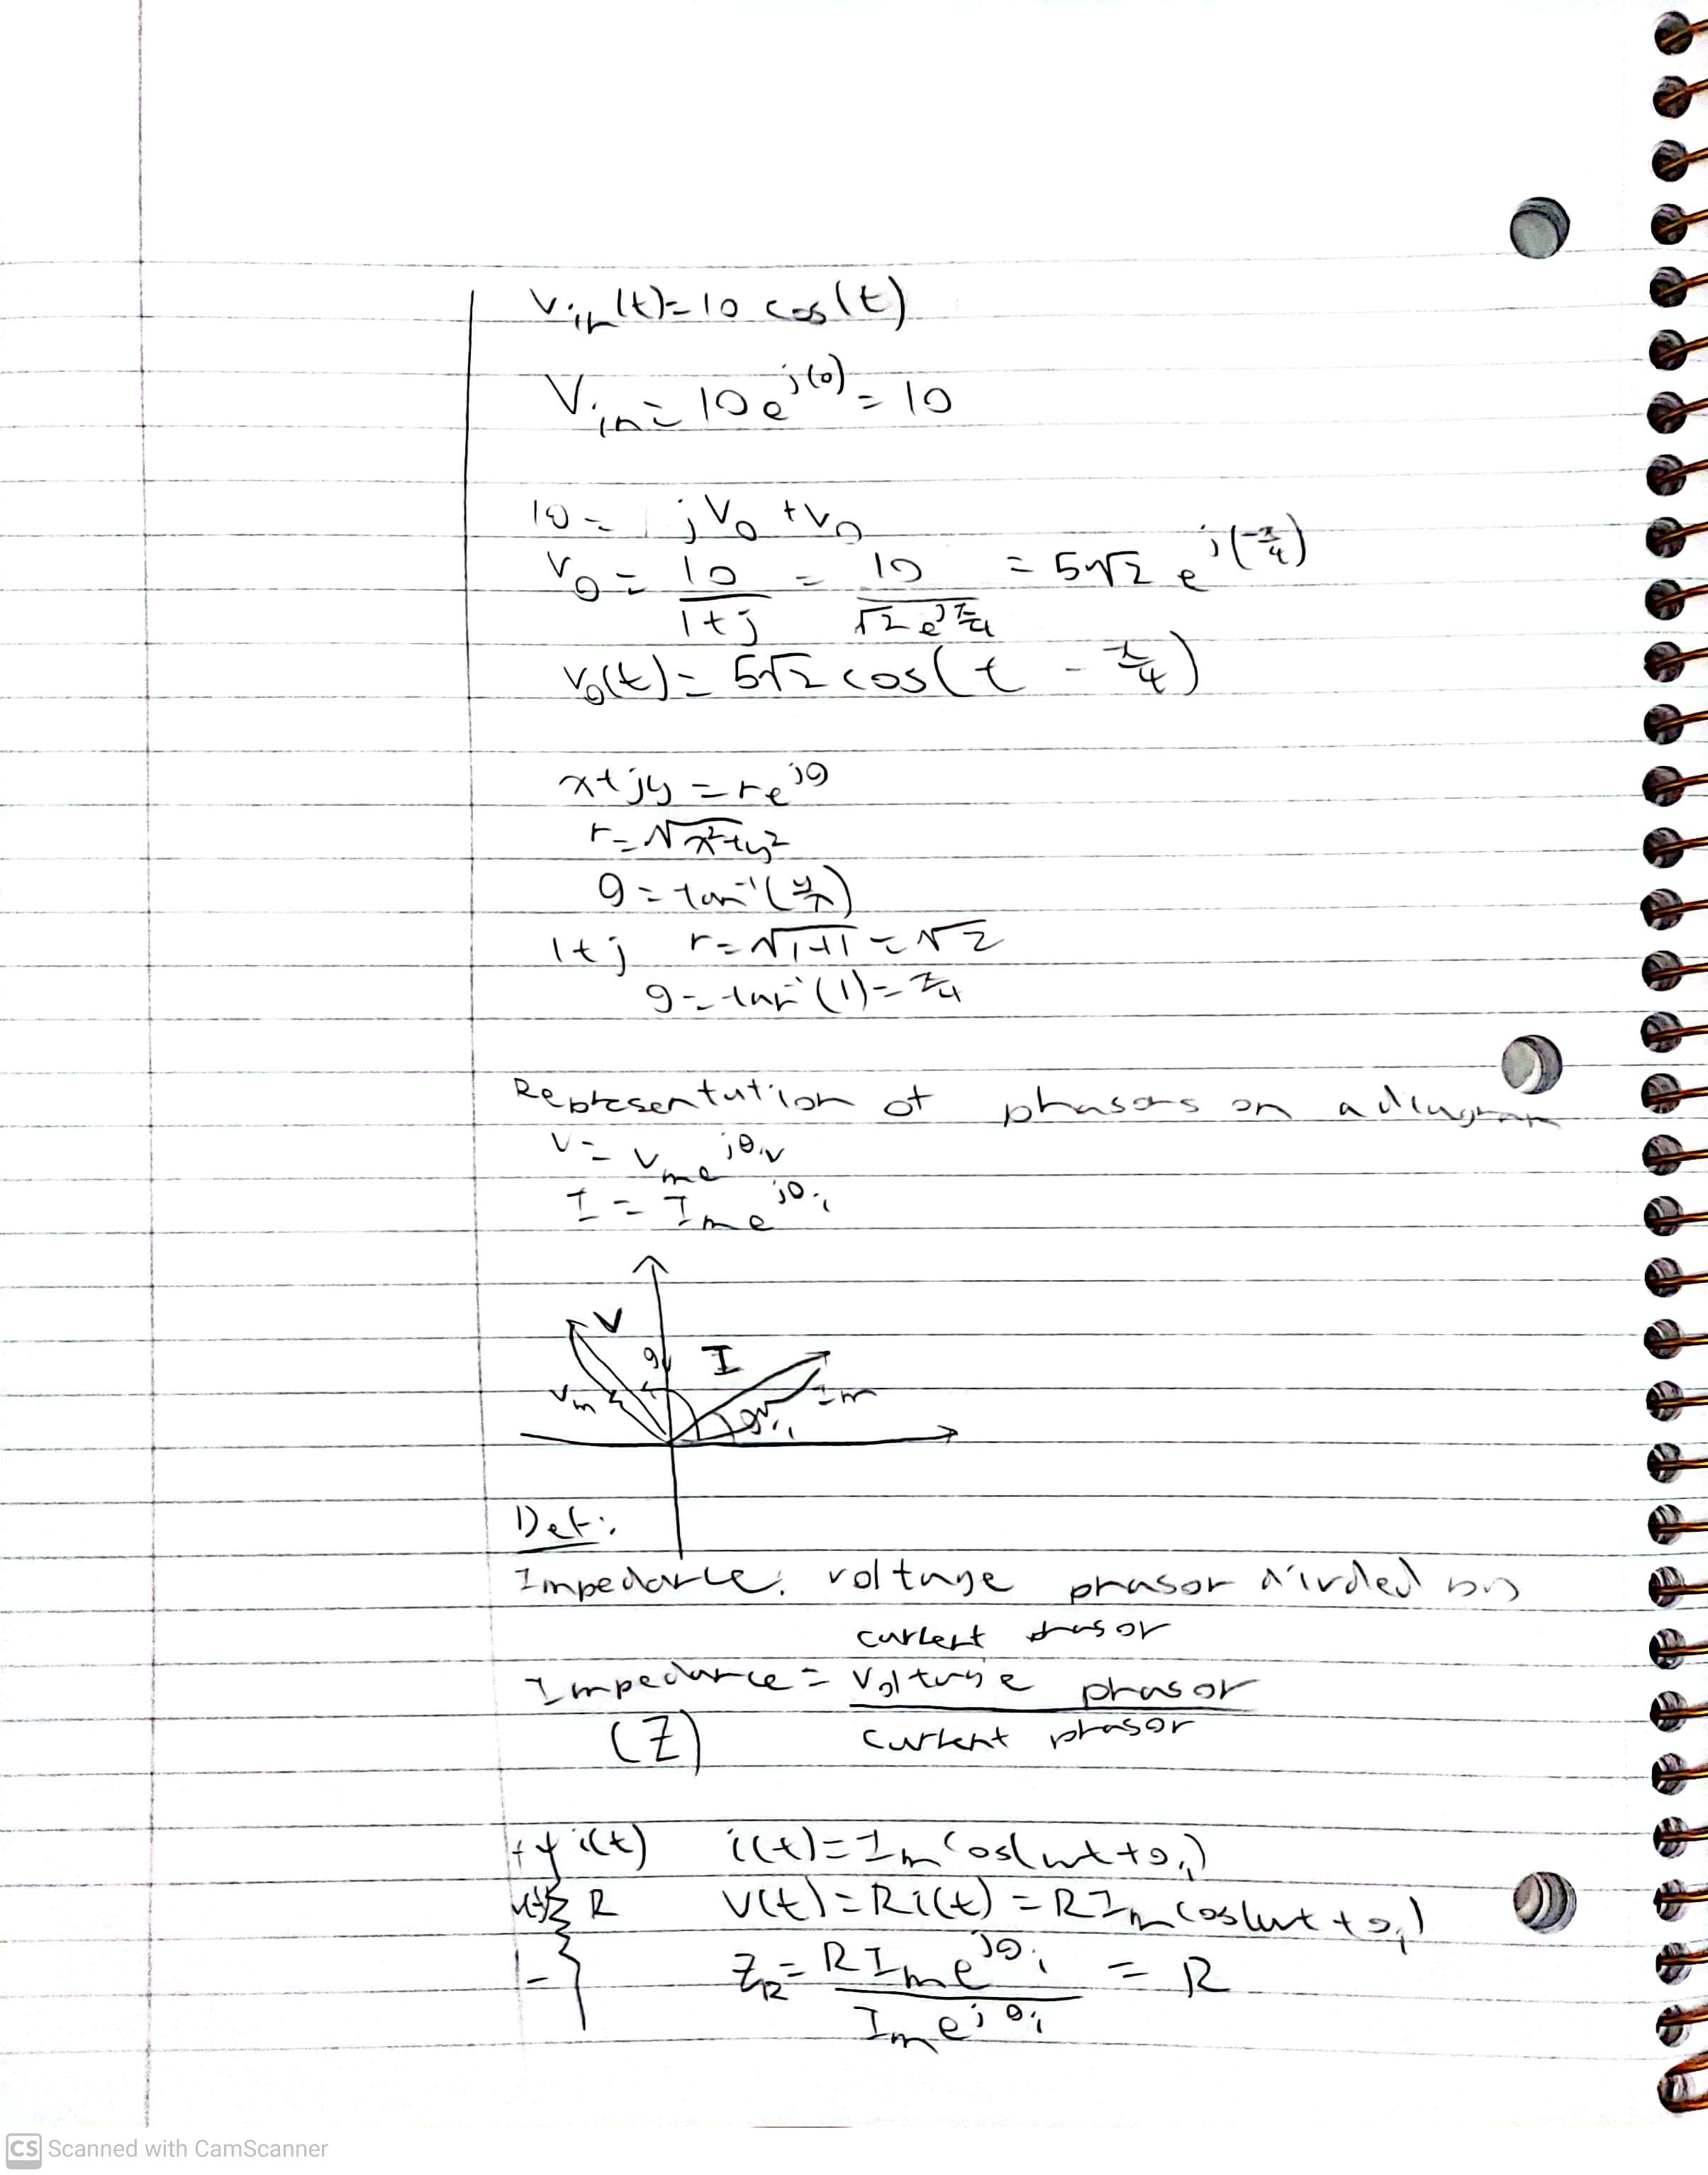 v_in(t)=10 cos(t)
V_in = 10 e^j(0) = 10
10 = jV_0 + V_0
V_0 = 10/(1+j) = 10/(√2 e^jπ/4) = 5√2 e^j(-π/4)
v_0(t) = 5√2 cos(t - π/4)
x+jy = re^jθ
r = √x²+y²
θ = tan⁻¹(y/x)
1+j r = √1+1 = √2
θ = tan⁻¹(1) = π/4
Representation of phasors on a diagram
V = V_m e^jθ_v
I = I_m e^jθ_i
V
θ_v I
V_m θ_i I_m
Def:
Impedance: voltage phasor divided by
current phasor
Impedance = Voltage phasor
(Z) current phasor
+ i(t) i(t) = I_m cos(ωt+θ_i)
v(t) R v(t) = Ri(t) = RI_m cos(ωt+θ_i)
- Z_R = RI_m e^jθ_i / I_m e^jθ_i = R
CS Scanned with CamScanner